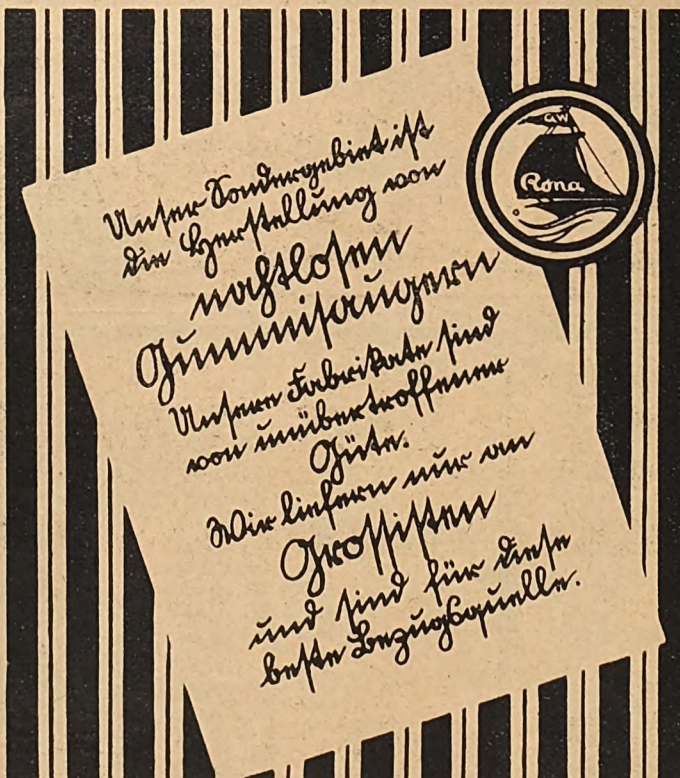 GW
Rona
Unser Sondergebiet ist
die Herstellung von
nahtlosen
Gummisaugern
Unsere Fabrikate sind
von unübertroffener
Güte.
Wir liefern nur an
Grossisten
und sind für diese
beste Bezugsquelle.